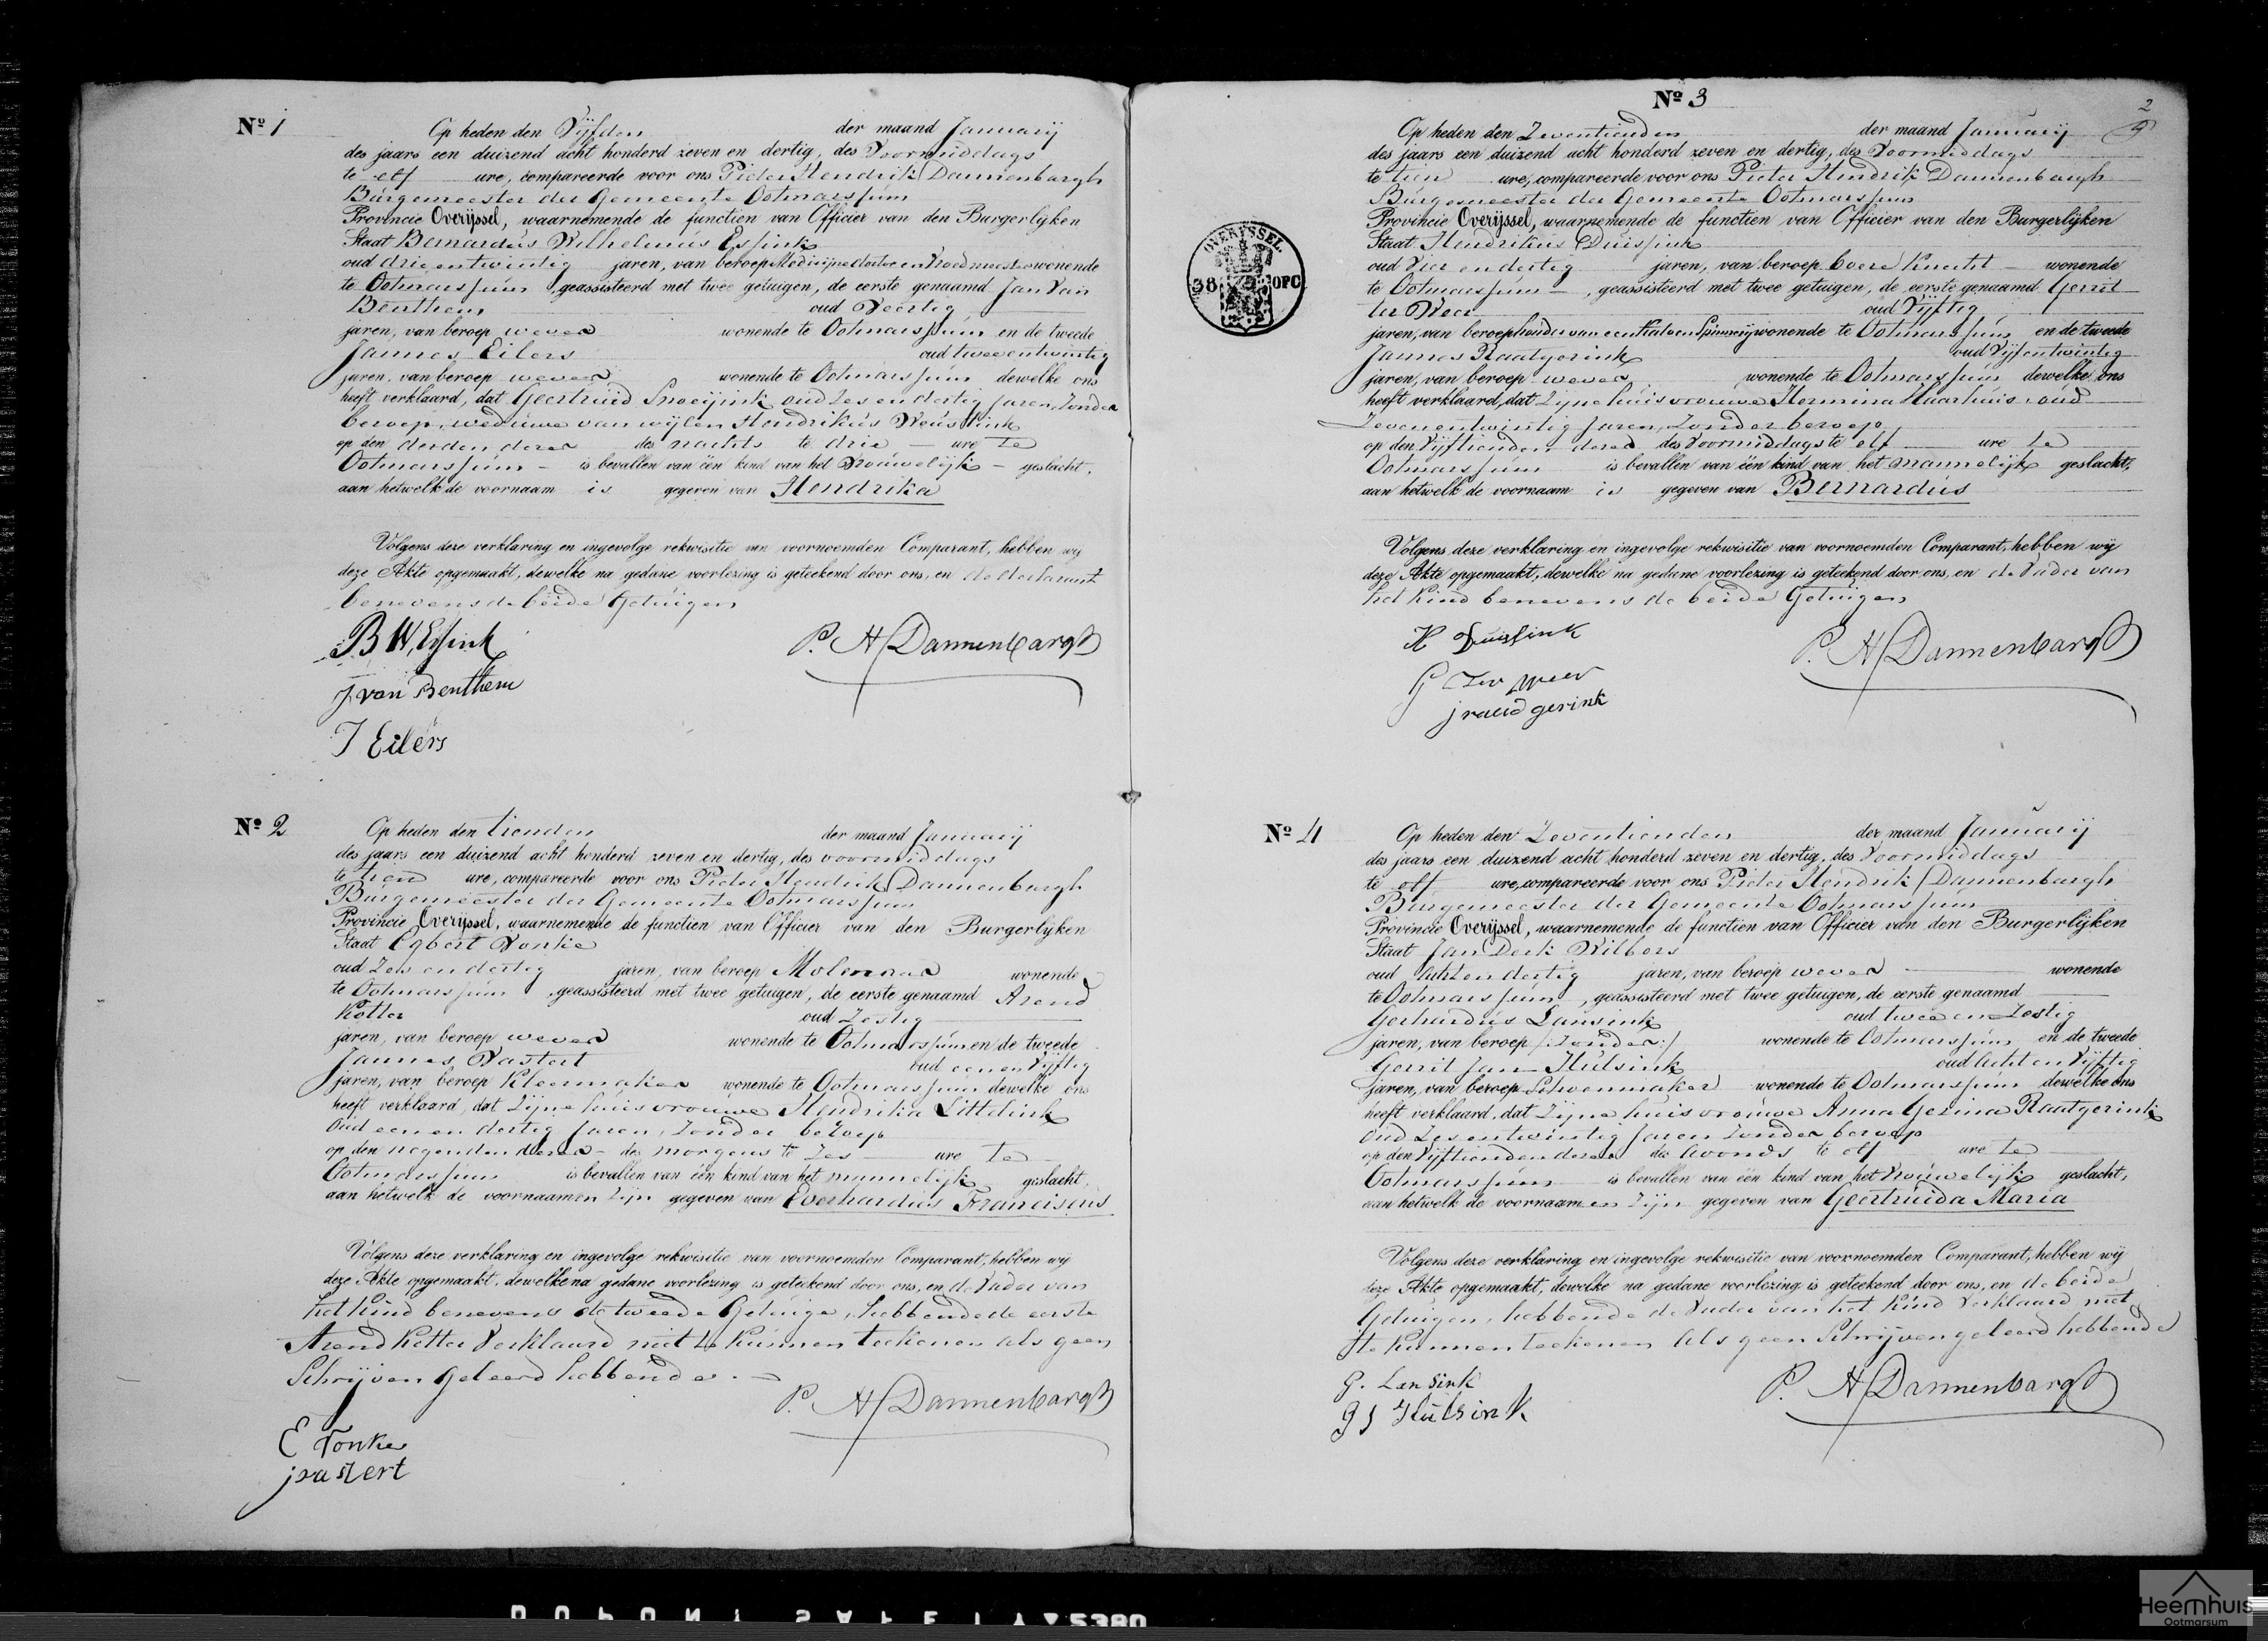 Nº 1
Op heden den Vijfden der maand Januarij
des jaars een duizend acht honderd zeven en dertig, des Voormiddags
te elf ure, compareerde voor ons Pieter Hendrik Dannenbargh
Burgemeester der Gemeente Ootmarssum
Provincie Overijssel, waarnemende de functien van Officier van den Burgerlyken
Staat Bernardus Wilhelmus Essink
oud drie en twintig jaren, van beroep Medicijne doctor en Vroedmeester wonende
te Ootmarssum, geassisteerd met twee getuigen, de eerste genaamd Jan Van
Benthem oud Veertig
jaren, van beroep wever wonende te Ootmarssum en de tweede
Jannes Eilers oud twee entwintig
jaren, van beroep wever wonende te Ootmarssum dewelke ons
heeft verklaard, dat Geertruid Snoeijink oud Zes en dertig jaren, Zonder
beroep, weduwe van wijlen Hendrikus
op den derden dezer des nachts te drie ure te
Ootmarssum is bevallen van één kind van het Vrouwelijk geslacht,
aan hetwelk de voornaam is gegeven van Hendrika
Volgens deze verklaring en ingevolge rekwisitie van voornoemden Comparant, hebben wy
deze Akte opgemaakt, dewelke na gedane voorlezing is geteekend door ons, en de declarant
benevens de beide Getuigen
B W Essink
P. H Dannenbargh
J van Benthem
J Eilers
Nº 2
Op heden den tienden der maand Januarij
des jaars een duizend acht honderd zeven en dertig, des voormiddags
te tien ure, compareerde voor ons Pieter Hendrik Dannenbargh
Burgemeester der Gemeente Ootmarssum
Provincie Overijssel, waarnemende de functien van Officier van den Burgerlyken
Staat Egbert Vonke
oud Zes en dertig jaren, van beroep Molenaar wonende
te Ootmarssum, geassisteerd met twee getuigen, de eerste genaamd Arend
Kotter oud Zestig
jaren, van beroep wever wonende te Ootmarssum en de tweede
Jannes Vastert oud een en Vijftig
jaren, van beroep Kleermaker wonende te Ootmarssum dewelke ons
heeft verklaard, dat Zijne huisvrouwe Hendrika Littelink
Oud een en dertig Jaren, Zonder beroep
op den negenden dezer des morgens te Zes ure te
Ootmarssum is bevallen van één kind van het mannelijk geslacht,
aan hetwelk de voornaamen Zijn gegeven van Everhardus Franciscus
Volgens deze verklaring en ingevolge rekwisitie van voornoemden Comparant, hebben wij
deze Akte opgemaakt, dewelke na gedane voorlezing is geteekend door ons, en de Vader van
het Kind benevens de tweede Getuige, hebbende de eerste
Arend Kotter Verklaard niet te Kunnen teekenen als geen
Schrijven Geleerd hebbende.
P. H Dannenbargh
E Vonke
j vastert
Nº 3
2
Op heden den Zeventienden der maand Januarij
des jaars een duizend acht honderd zeven en dertig, des Voormiddags
te tien ure, compareerde voor ons Pieter Hendrik Dannenbargh
Burgemeester der Gemeente Ootmarssum
Provincie Overijssel, waarnemende de functien van Officier van den Burgerlijken
Staat Hendrikus Duissink
OVERYSSEL
38 OPC
oud Vier en dertig jaren, van beroep boere Knecht wonende
te Ootmarssum, geassisteerd met twee getuigen, de eerste genaamd Gerrit
ter Weer oud Vijftig
jaren, van beroep houder van een Katoen Spinnerij wonende te Ootmarssum en de tweede
Jannes Raatgerink oud Vijf entwintig
jaren, van beroep wever wonende te Ootmarssum dewelke ons
heeft verklaard, dat Zijne huisvrouwe Hermina Haarhuis, oud
Zeven entwintig Jaren, Zonder beroep,
op den Vijftienden dezer des Voormiddags te elf ure te
Ootmarssum is bevallen van één kind van het mannelijk geslacht,
aan hetwelk de voornaam is gegeven van Bernardus
Volgens deze verklaring en ingevolge rekwisitie van voornoemden Comparant, hebben wij
deze Akte opgemaakt, dewelke na gedane voorlezing is geteekend door ons, en de Vader van
het Kind benevens de beide Getuigen
H Duissink
P. H Dannenbargh
G Ter Weer
j raadgerink
Nº 4
Op heden den Zeventienden der maand Januarij
des jaars een duizend acht honderd zeven en dertig, des Voormiddags
te elf ure, compareerde voor ons Pieter Hendrik Dannenbargh
Burgemeester der Gemeente Ootmarssum
Provincie Overijssel, waarnemende de functien van Officier van den Burgerlijken
Staat Jan Derk Wilbers
oud Acht en dertig jaren, van beroep wever wonende
te Ootmarssum, geassisteerd met twee getuigen, de eerste genaamd
Gerhardus Lansink oud twee en Zestig
jaren, van beroep /:Zonder:/ wonende te Ootmarssum en de tweede
Gerrit Jan Hulsink oud Acht en Vijftig
jaren, van beroep Schoenmaker wonende te Ootmarssum dewelke ons
heeft verklaard, dat Zijne huisvrouwe Anna Gezina Raatgerink
oud Zes entwintig Jaren Zonder beroep
op den Vijftienden dezer des Avonds te elf ure te
Ootmarssum is bevallen van één kind van het Vrouwelijk geslacht,
aan hetwelk de voornaamen Zijn gegeven van Geertruida Maria
Volgens deze verklaring en ingevolge rekwisitie van voornoemden Comparant, hebben wij
deze Akte opgemaakt, dewelke na gedane voorlezing is geteekend door ons, en de beide
Getuigen, hebbende de Vader van het Kind Verklaard niet
te Kunnen teekenen Als geen Schrijven geleerd hebbende
G. Lansink
P. H Dannenbargh
G J Hulsink
Heemhuis
Ootmarsum
5380